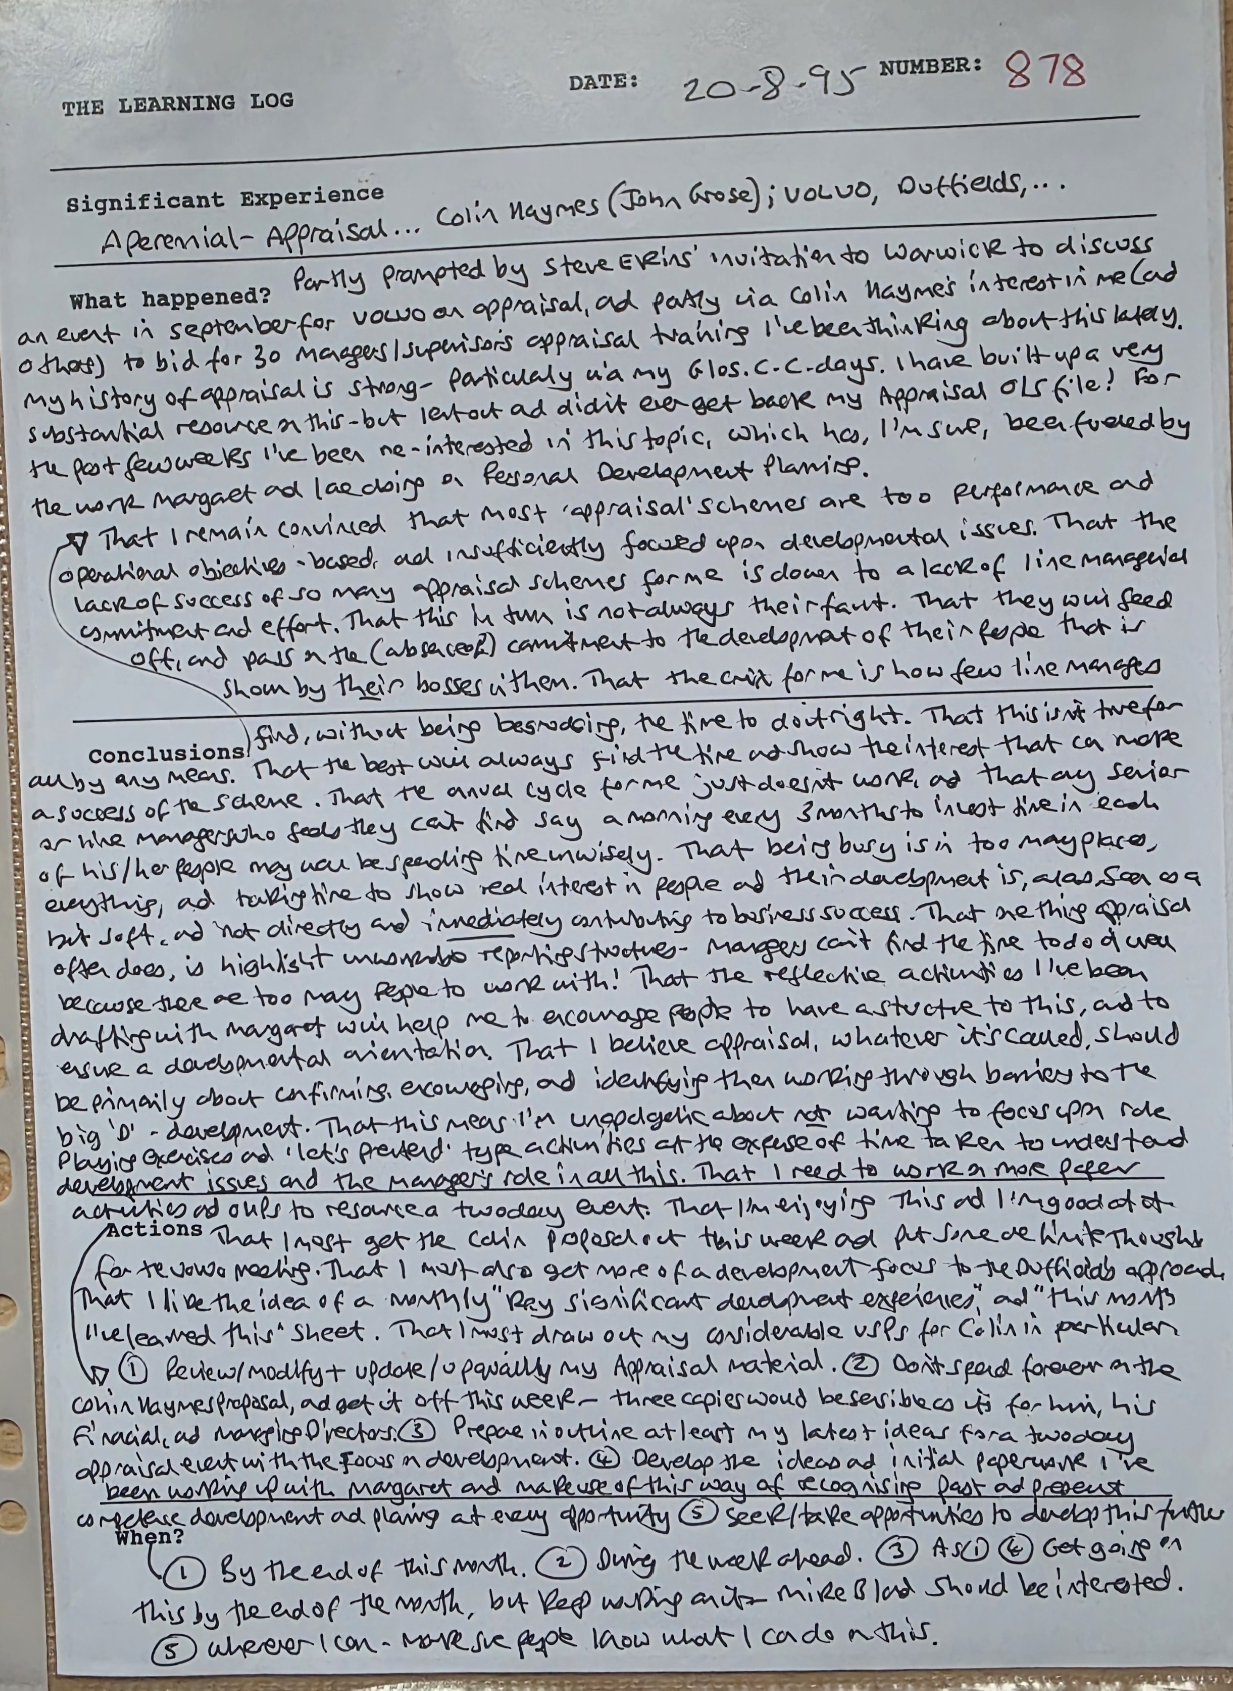 THE LEARNING LOG DATE: 20-8-95 NUMBER: 878
Significant Experience
A perennial - Appraisal... Colin Haymes (John Grose); VOLVO, Duffields,...
What happened? Partly prompted by Steve Ekins' invitation to Warwick to discuss
an event in September for VOLVO on appraisal, ad partly via Colin Hayme's interest in me (ad
others) to bid for 30 managers/supervisors appraisal training I've been thinking about this lately.
My history of appraisal is strong - particularly via my Glos. C.C. days. I have built up a very
substantial resource on this - but lent out ad did it ever get back my Appraisal OLS file! For
the past few weeks I've been re-interested in this topic, which has, I'm sure, been fueled by
the work Margaret ad I are doing on Personal Development Planning.
That I remain convinced that most 'appraisal' schemes are too performance ad
operational objectives-based, ad insufficiently focused upon developmental issues. That the
lack of success of so many appraisal schemes for me is down to a lack of line managerial
commitment and effort. That this in turn is not always their fault. That they will feed
off, and pass on the (absence of?) commitment to the development of their people that is
shown by their bosses in them. That the crux for me is how few line managers
Conclusions find, without being begrudging, the time to do it right. That this isn't true for
all by any means. That the best will always find the time ad show the interest that can make
a success of the scheme. That the annual cycle for me just doesn't work, ad that any senior
or line manager who feels they can't find say a morning every 3 months to invest time in each
of his/her people may well be spending time unwisely. That being busy is in too many places,
everything, ad taking time to show real interest in people ad their development is, alas, seen as a
bit soft, ad not directly and immediately contributing to business success. That one thing appraisal
often does, is highlight unworkable reporting structures - managers can't find the time to do it well
because there are too many people to work with! That the reflective activities I've been
drafting with Margaret will help me to encourage people to have a structure to this, and to
ensure a developmental orientation. That I believe appraisal, whatever it's called, should
be primarily about confirming, encouraging, and identifying then working through barriers to the
big 'D' - development. That this means I'm unapologetic about not wanting to focus upon role
playing exercises ad 'let's pretend' type activities at the expense of time taken to understand
development issues and the manager's role in all this. That I need to work on more paper
activities ad OHPs to resource a two day event. That I'm enjoying this ad I'm good at it
Actions That I must get the Colin proposal out this week ad put some definite thoughts
for the Volvo meeting. That I must also get more of a development focus to the Duffields approach.
That I like the idea of a monthly "Key significant development experiences", ad "this month
I've learned this" sheet. That I must draw out my considerable USPs for Colin in particular
① Review/modify + update/upquality my Appraisal material. ② Don't spend forever on the
Colin Haymes proposal, ad get it off this week - three copies would be sensible as it's for him, his
Financial, ad Managing Directors. ③ Prepare in outline at least my latest ideas for a two day
appraisal event with the focus on development. ④ Develop the ideas ad initial paperwork I've
been working up with Margaret and make use of this way of recognising past ad present
development ad planning at every opportunity ⑤ Seek/take opportunities to develop this further
When?
① By the end of this month. ② During the week ahead. ③ As ① ④ Get going on
this by the end of the month, but keep working on it - Mike Blad should be interested.
⑤ Wherever I can - make sure people know what I can do on this.